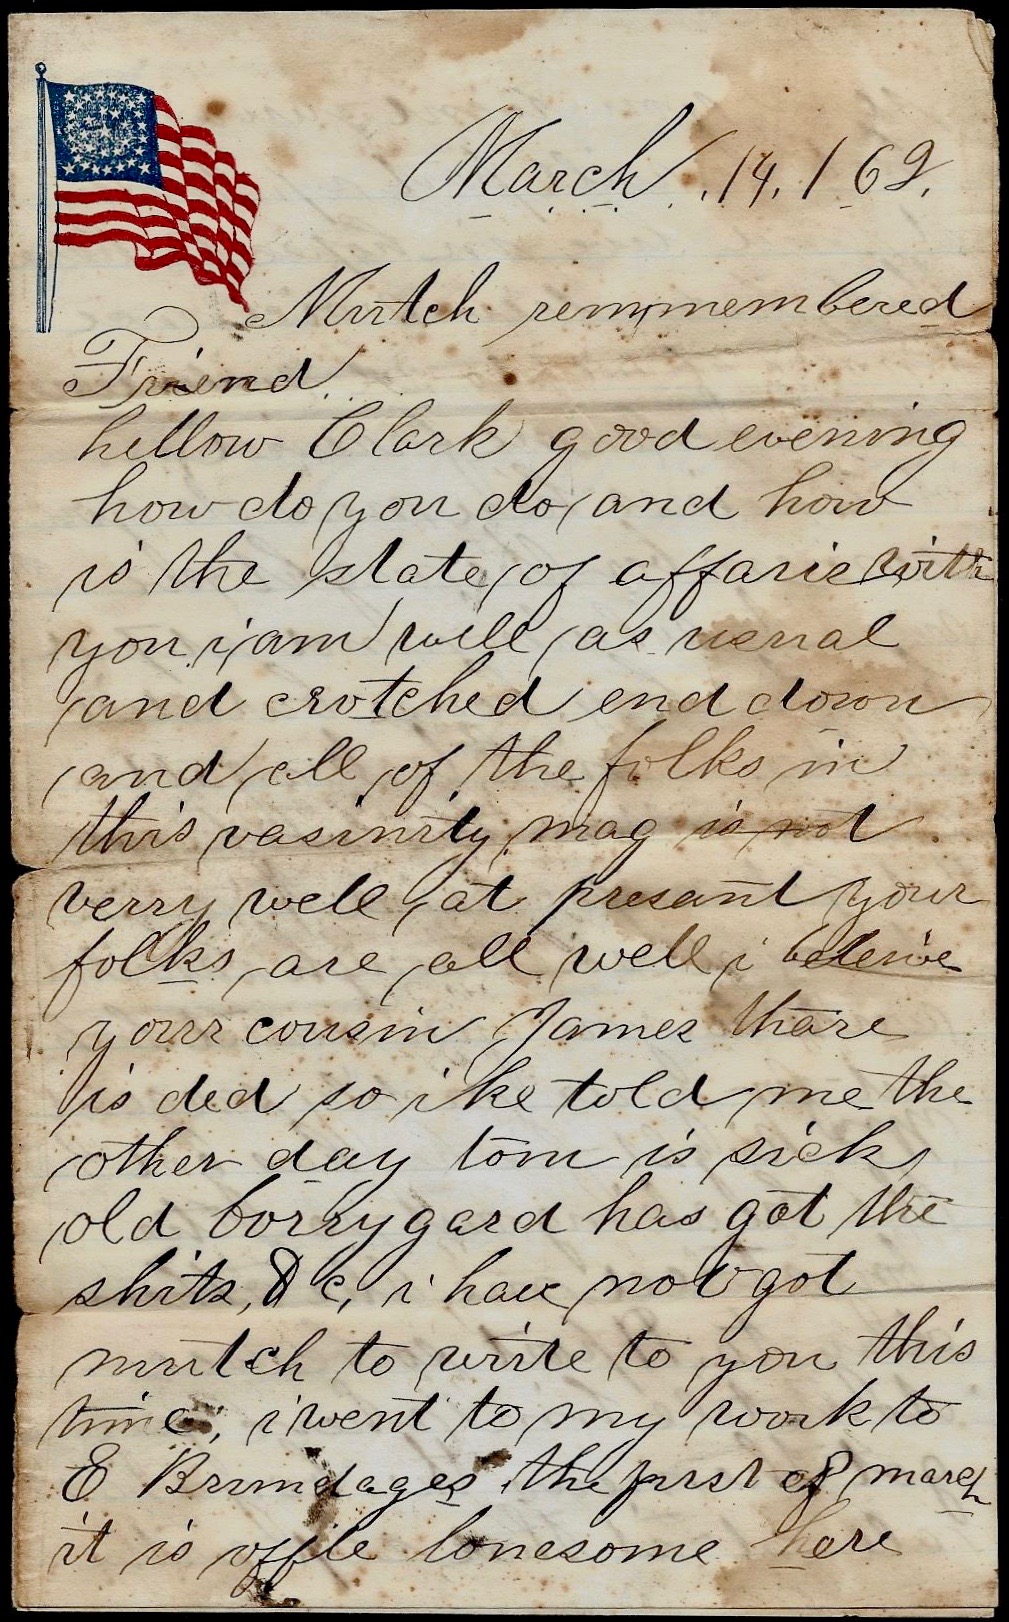 March. 14. 1 62.
Mutch remmembered
Friend.
hellow Clark good evening
how do you do and how
is the state of affarie with
you i am well as usual
and crotched end down
and all of the folks in
this vasinity mag is not
verry well at present your
folks are all well i beleive
your cousin James thare
is ded so ike told me the
other day tom is sick
old borrygard has got the
shits, & c, i have not got
mutch to write to you this
time, i went to my work to
E Brundages the first of march
it is offle lonesome here